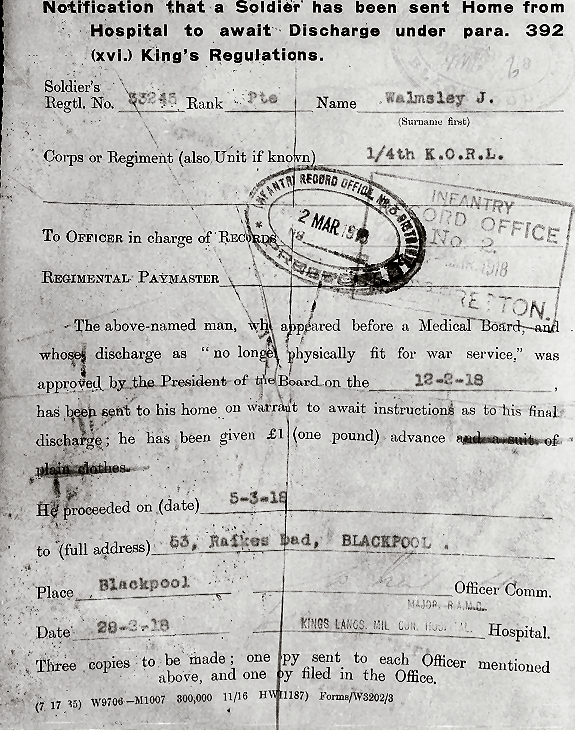 Notification that a Soldier has been sent Home from
Hospital to await Discharge under para. 392
(xvi.) King's Regulations.
Soldier's
Regtl. No. 33245 Rank Pte Name Walmsley J.
(Surname first)
Corps or Regiment (also Unit if known) 1/4th K.O.R.L.
INFANTRY RECORD OFFICE, No. DISTRICT
2 MAR 1918
INFANTRY
ORD OFFICE
No 2
1918
RETTON.
To OFFICER in charge of RECORDS
REGIMENTAL PAYMASTER
The above-named man, who appeared before a Medical Board, and
whose discharge as "no longer physically fit for war service," was
approved by the President of the Board on the 12-2-18,
has been sent to his home on warrant to await instructions as to his final
discharge; he has been given £1 (one pound) advance and a suit of
plain clothes.
He proceeded on (date) 5-3-18
to (full address) 53, Raikes oad, BLACKPOOL.
Place Blackpool Officer Comm.
MAJOR, R.A.M.C.
Date 28-2-18 KINGS LANCS. MIL. CON. Hospital.
Three copies to be made; one py sent to each Officer mentioned
above, and one by filed in the Office.
(7 17 35) W9706—M1007 300,000 11/16 HW(1187) Forms/W3202/3